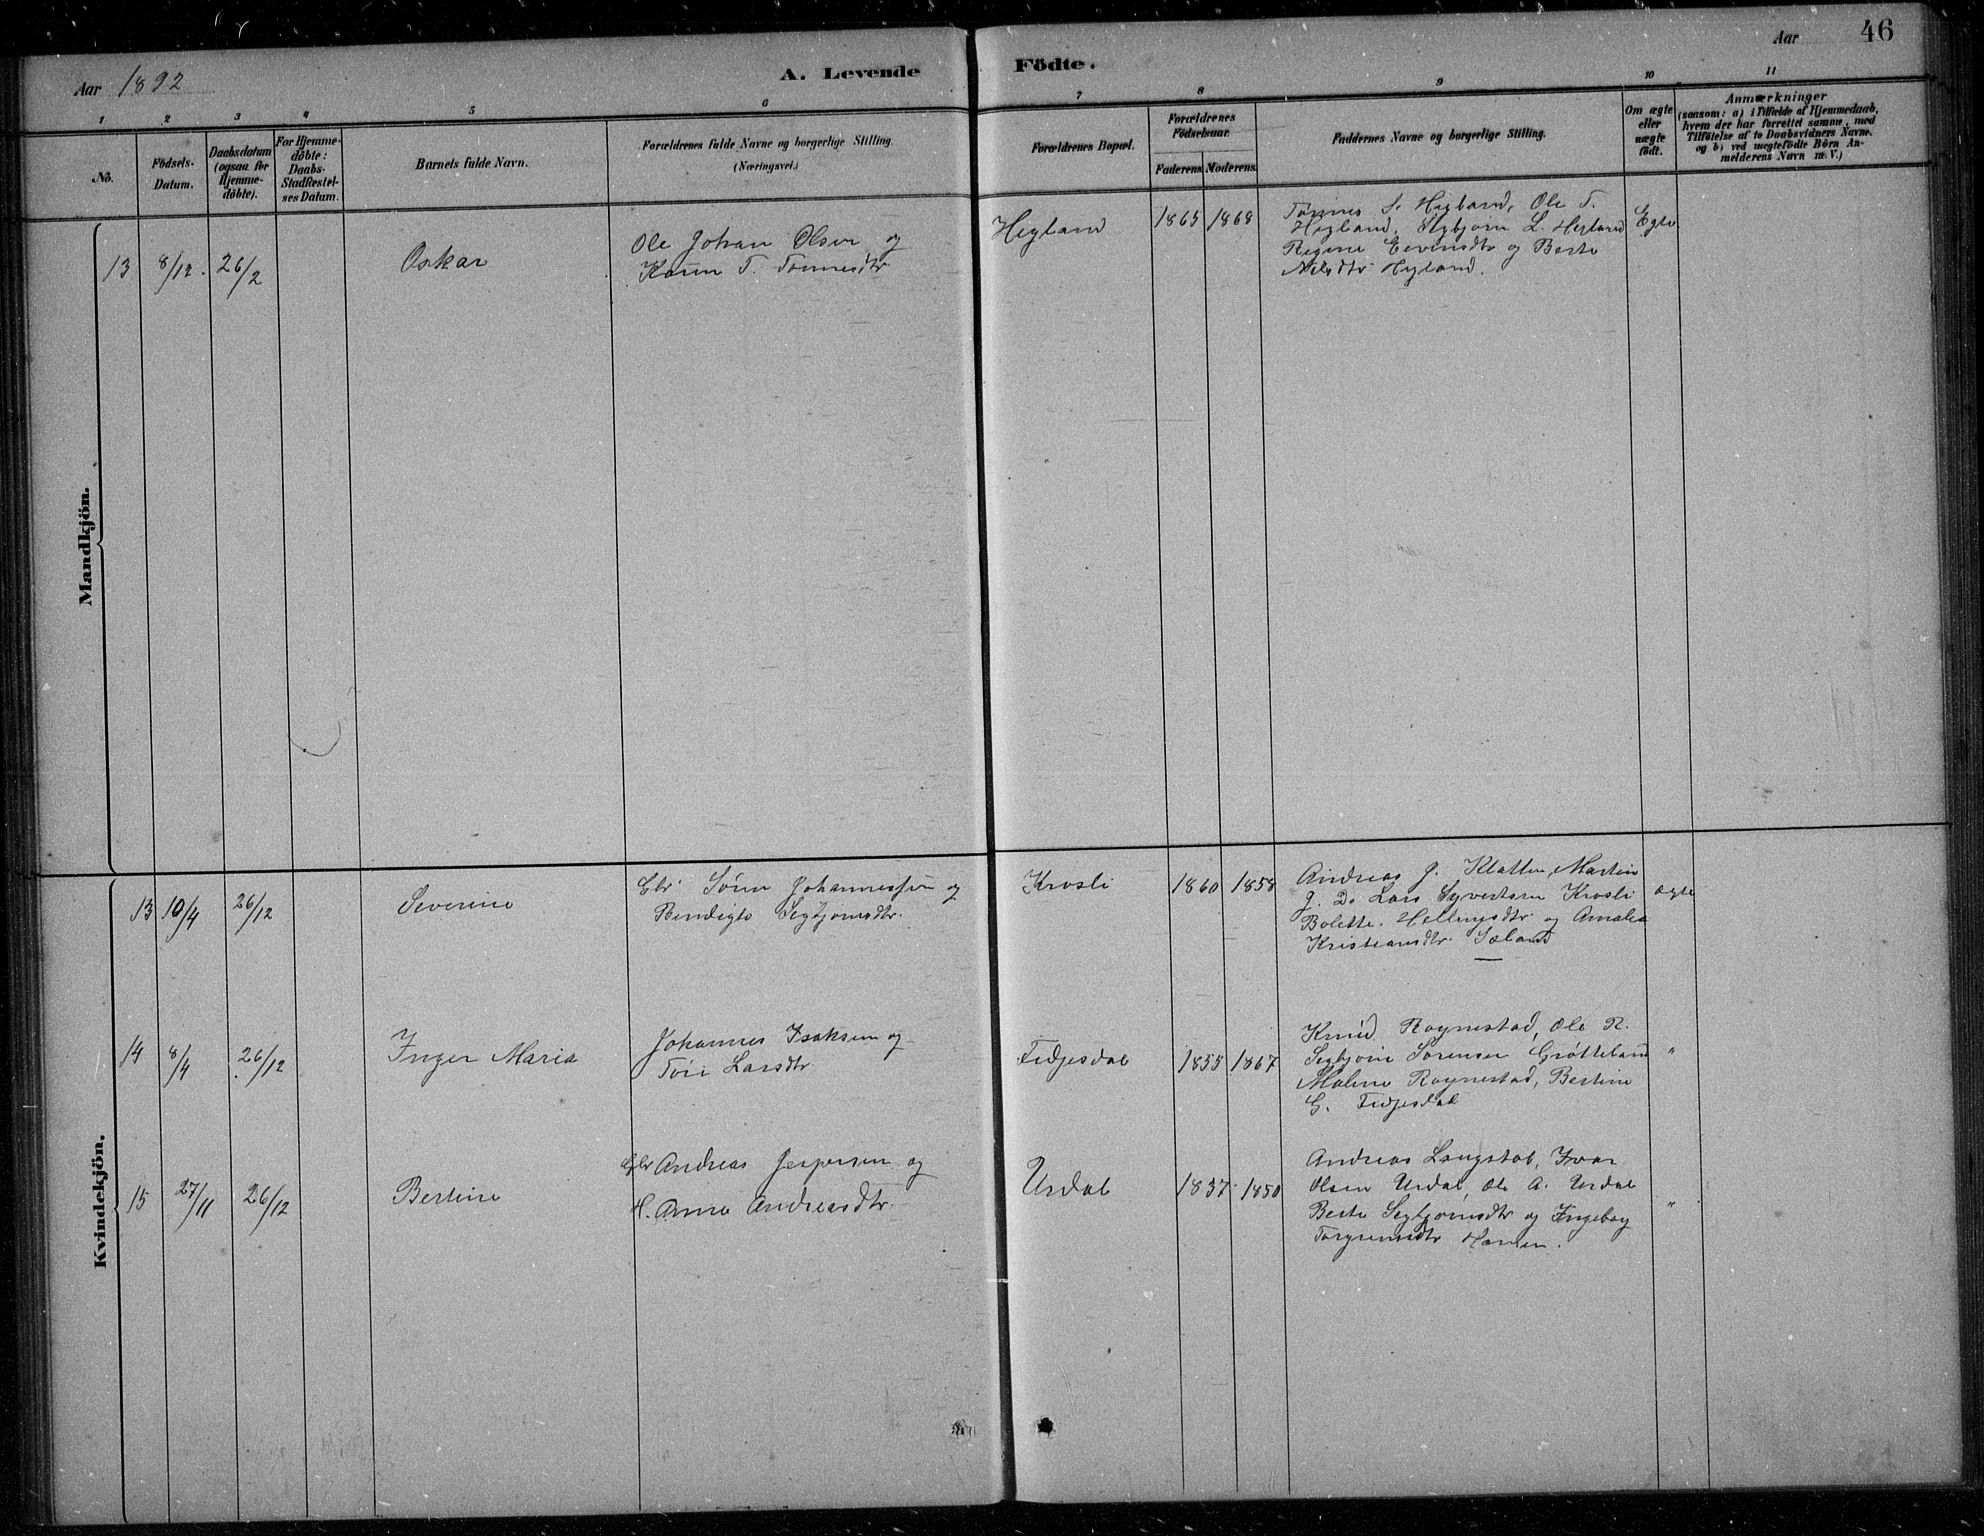 Aar 1892
A. Levende
Födte.
Aar
46
1 2 3 4 5 6 7 8 9 10 11
No.
Födsels-
Datum.
Daabsdatum
(ogsaa for
Hjemme-
döbte).
For Hjemme-
döbte:
Daabs-
Stadfæstel-
ses Datum.
Barnets fulde Navn.
Forældrenes fulde Navne og borgerlige Stilling.
(Næringsvei.)
Forældrenes Bopæl.
Forældrenes
Födselsaar.
Faderens. Moderens.
Faddernes Navne og borgerlige Stilling.
Om ægte
eller
uægte
födt.
Anmærkninger
(saasom: a) i Tilfælde af Hjemmedaab,
hvem der har forrettet samme, med
Tilföielse af to Daabsvidners Navne,
og b) ved uægtefödte Börn An-
melderens Navn m. V.)
Mandkjön.
13 8/12. 26/2
Oskar
Ole Johan Olsen og
Karen T. Tønnesdtr
Hegland
1865 1868
Tønnes S. Hegland, Ole T.
Hegland, Segbjørn L. Hegland
Regine Eivindsdtr og Berte
Nilsdtr Hegland.
Egte
Kvindekjön.
13 10/4 26/12
Severine
Gbr Søren Johannessen og
Bendigte Segbjørnsdtr.
Krosli
1860 1858
Andreas J. Kletten, Martin
J. Do Lars Syvertsen Krosli
Bolette Hellingsdtr og Amalea
Kristiansdtr. Sæland
ægte
14 8/4 26/12
Inger Maria
Johannes Isaksen og
Tori Larsdtr
Fidjesdal
1855 1867
Knud Roynestad, Ole R.
Segbjørn Sørensen Grøtteland
Malene Roynestad, Bertine
G. Fidjesdal
"
15 27/11 26/12
Bertine
Gbr Andreas Jespersen og
H. Anne Andreasdtr.
Urdal
1837 1850
Andreas Langstøl, Ivar
Olsen Urdal, Ole A. Urdal
Berte Segbjørnsdtr og Ingeborg
Torgrimsdtr Hamren.
"